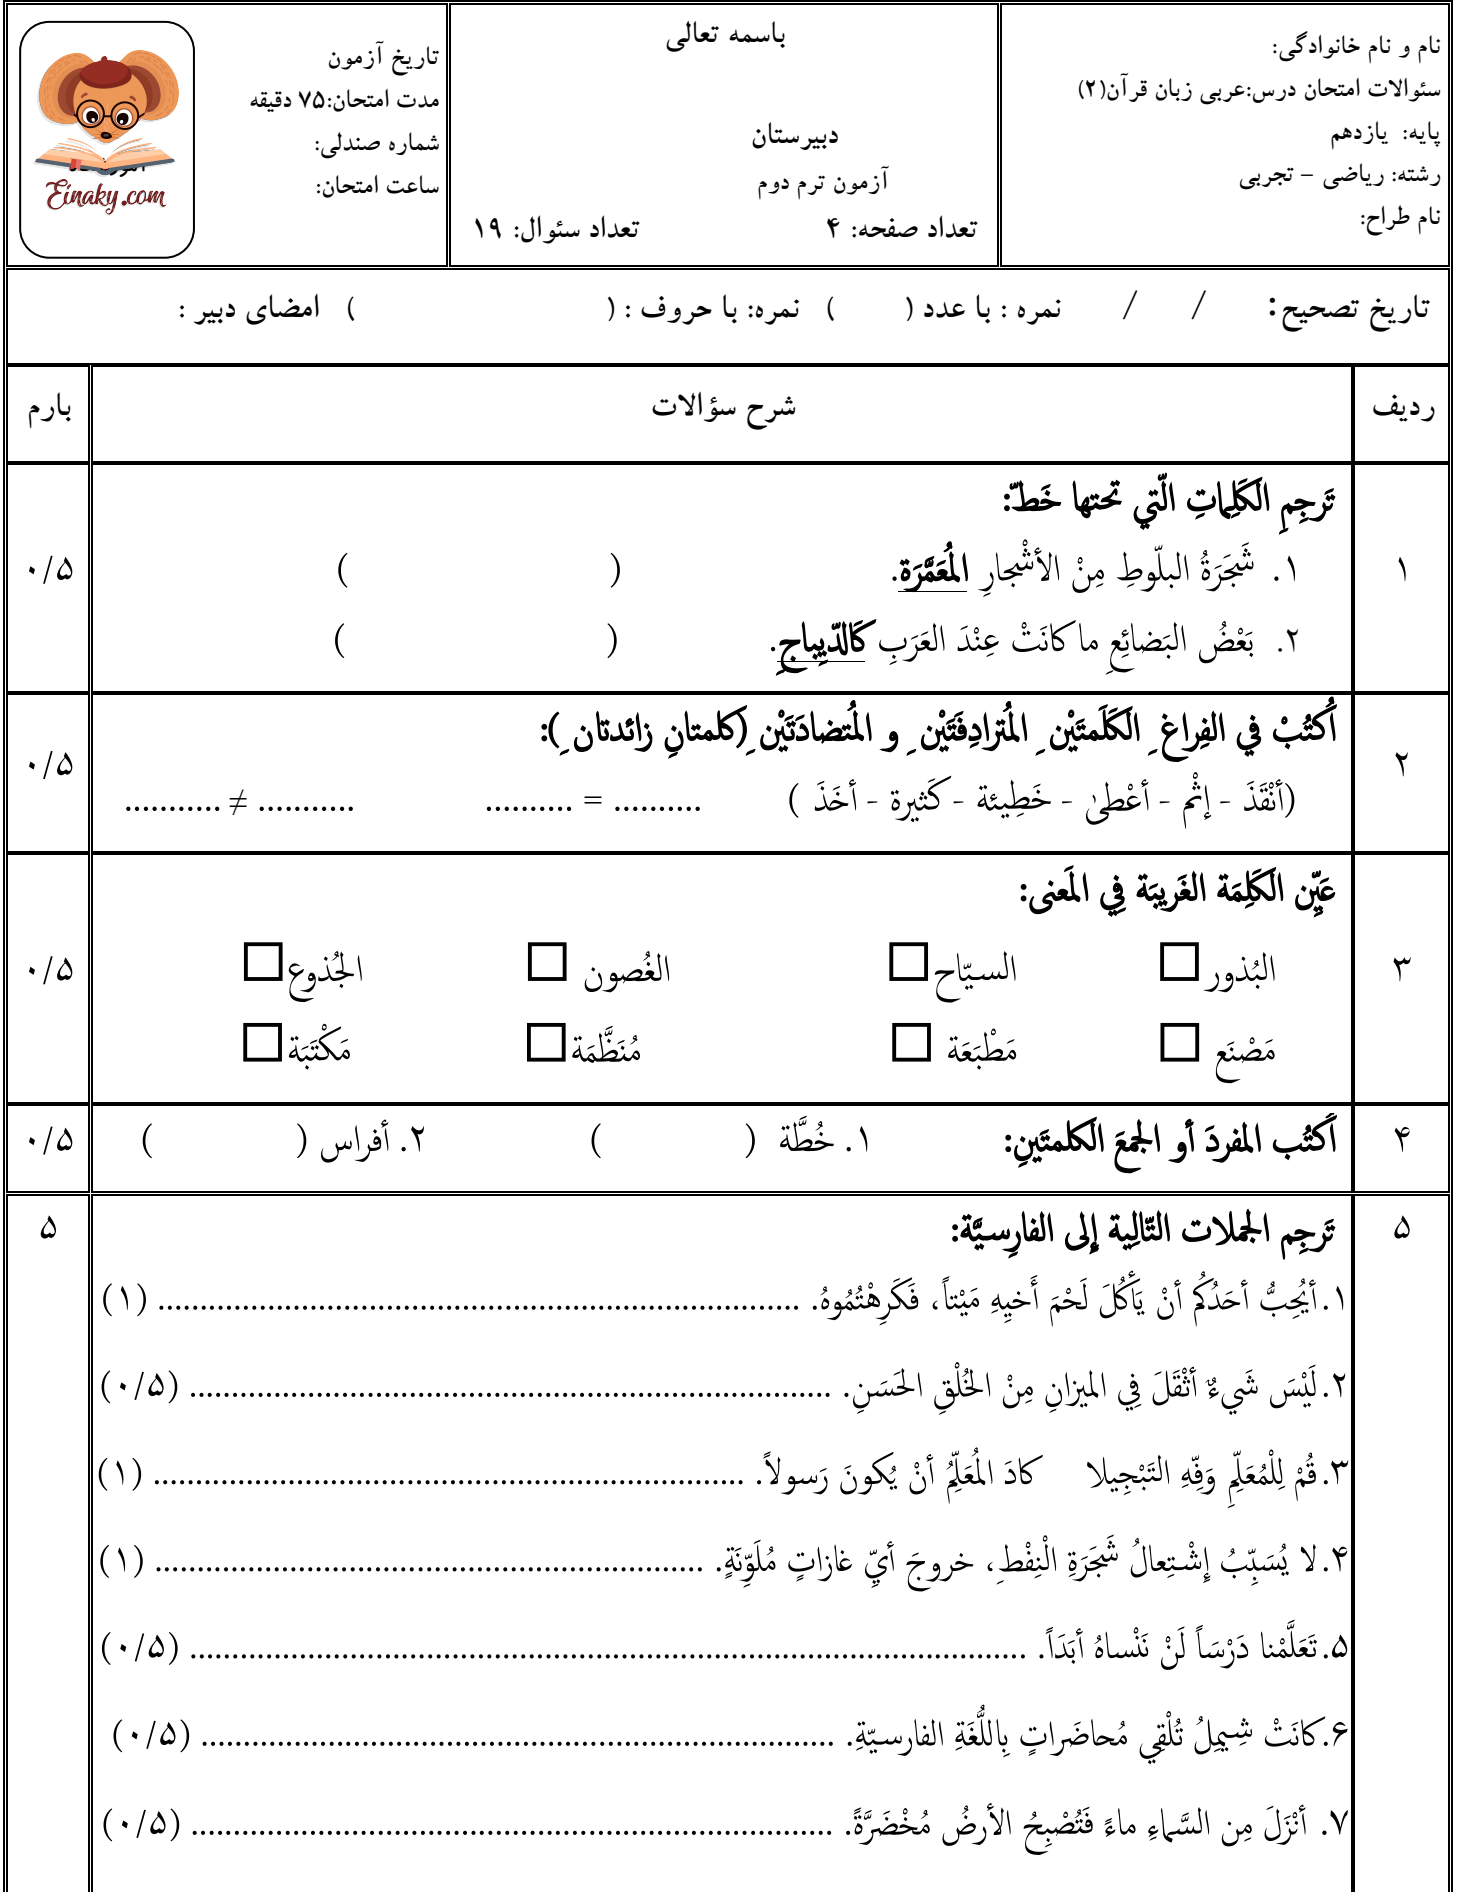 نام و نام خانوادگی:
سئوالات امتحان درس:عربی زبان قرآن(۲)
پایه: یازدهم
رشته: ریاضی – تجربی
نام طراح:
باسمه تعالی
دبیرستان
آزمون ترم دوم
تعداد صفحه: ۴ تعداد سئوال: ۱۹
تاریخ آزمون
مدت امتحان:۷۵ دقیقه
شماره صندلی:
ساعت امتحان:
Einaky.com
تاریخ تصحیح: / / نمره : با عدد ( ) نمره: با حروف : ( ) امضای دبیر :
ردیف شرح سؤالات بارم
۱ ۰/۵
تَرجِمِ الکَلِماتِ الّتي تحتها خَطّ:
۱. شَجَرَةُ البلّوطِ مِنْ الأشْجارِ المُعَمَّرَة. ( )
۲. بَعْضُ البَضائِعِ ما کانَتْ عِنْدَ العَرَبِ کَالدّیباجِ. ( )
۲ ۰/۵
أُکتُبْ في الفِراغِ الکَلَمتَیْنِ المُترادِفَتَیْنِ و المُتضادَتَیْنِ(کلمتانِ زائدتانِ):
(أنْقَذَ - إثْم - أعْطیٰ - خَطِیئة - کَثیرة - أخَذَ ) .......... = .......... ........... ≠ ...........
۳ ۰/۵
عَیِّن الکَلِمَة الغَریبَة فِي المَعنی:
البُذور □ السیّاح □ الغُصون □ الجُذوع □
مَصْنَع □ مَطْبَعَة □ مُنَظَّمَة □ مَکْتَبَة □
۴ أکتُب المفردَ أو الجمعَ الکلمتَینِ: ۱. خُطَّة ( ) ۲. أفراس ( ) ۰/۵
۵ ۵
تَرجِم الجملات التّالِیة إلی الفارِسیَّة:
۱. أیُحِبُّ أحَدُکُم أنْ یَأکُلَ لَحْمَ أَخیِهِ مَیْتاً، فَکَرِهْتُمُوهُ. .......... (۱)
۲. لَیْسَ شَيءٌ أثْقَلَ فِي المیزانِ مِنْ الخُلْقِ الحَسَنِ. .......... (۰/۵)
۳. قُمْ لِلْمُعَلِّمِ وَفِّهِ التَبْجِیلا کادَ المُعَلِّمُ أنْ یُکونَ رَسولاً. .......... (۱)
۴. لا یُسَبِّبُ إِشْتِعالُ شَجَرَةِ الْنِفْطِ، خروجَ أيِّ غازاتٍ مُلَوِّنَةٍ. .......... (۱)
۵. تَعَلَّمْنا دَرْسَاً لَنْ نَنْساهُ أبَدَاً. .......... (۰/۵)
۶. کانَتْ شِیمِلُ تُلْقِي مُحاضَراتٍ بِاللُّغَةِ الفارسیّةِ. .......... (۰/۵)
۷. أنْزَلَ مِن السَّماءِ ماءً فَتُصْبِحُ الأرضُ مُخْضَرَّةً. .......... (۰/۵)